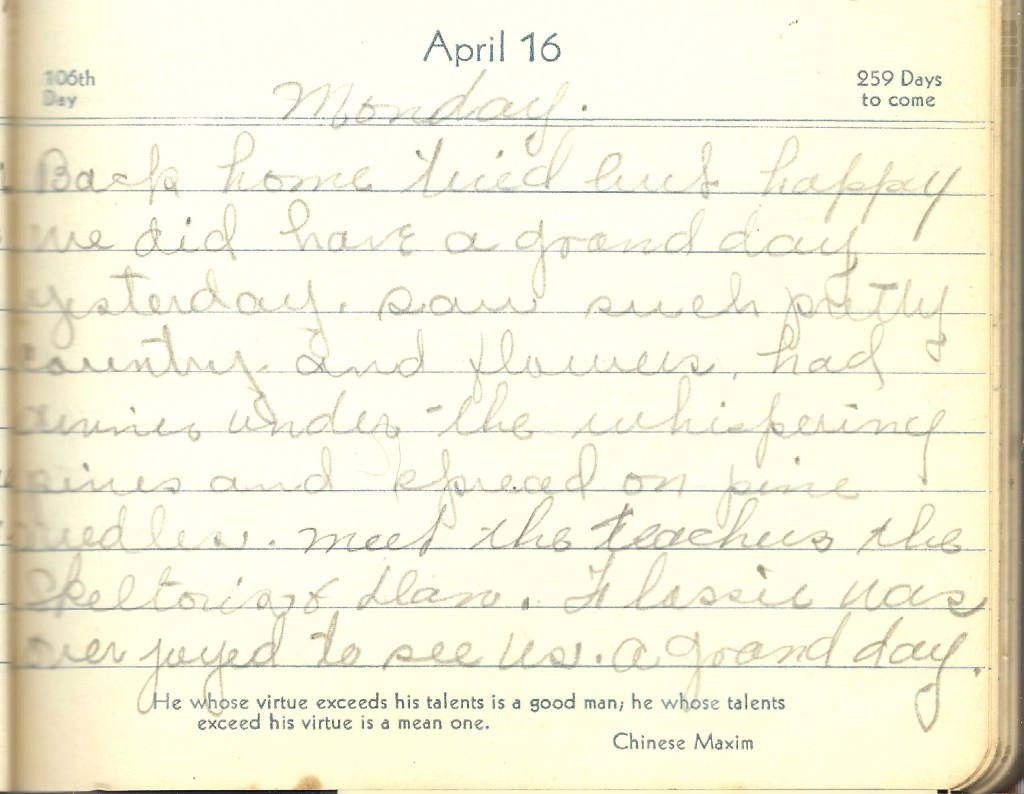 April 16
106th
Day
259 Days
to come
Monday.
Back home tired but happy
we did have a grand day
yesterday. saw such pretty
country. and flowers, had
dinner under the whispering
pines and spread on pine
needles. meet the teachers the
was
over joyed to see us. a grand day.
He whose virtue exceeds his talents is a good man; he whose talents
exceed his virtue is a mean one.
Chinese Maxim